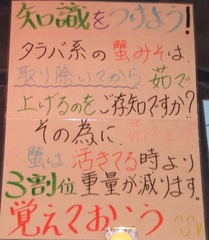 知識をつけよう!
タラバ系の蟹みそは、
取り除いてから、茹で
上げるのをご存知ですか?
その為に、茹で上げ
蟹は活きてる時より
3割位重量が減ります。
覚えておこう